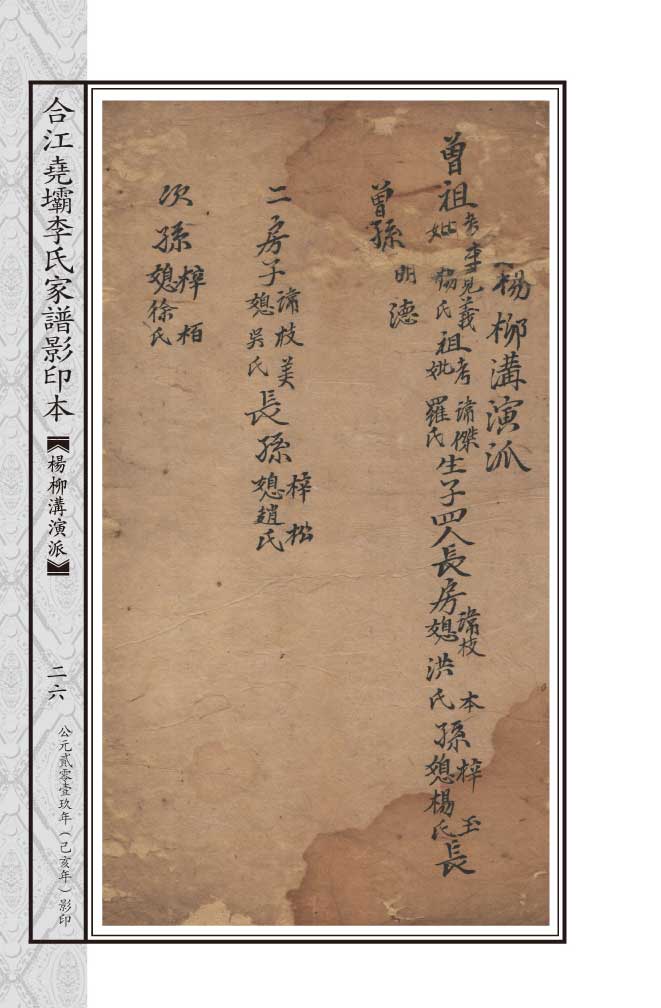 楊柳溝演派
曾祖考李見義妣楊氏祖考諱傑妣羅氏生子四人長房諱枝本媳洪氏孫梓玉媳楊氏長
曾孫明德
二房子諱枝美媳吳氏長孫梓松媳趙氏
次孫梓栢媳徐氏
合江堯壩李氏家譜影印本
【楊柳溝演派】
二六
公元貳零壹玖年（己亥年）影印